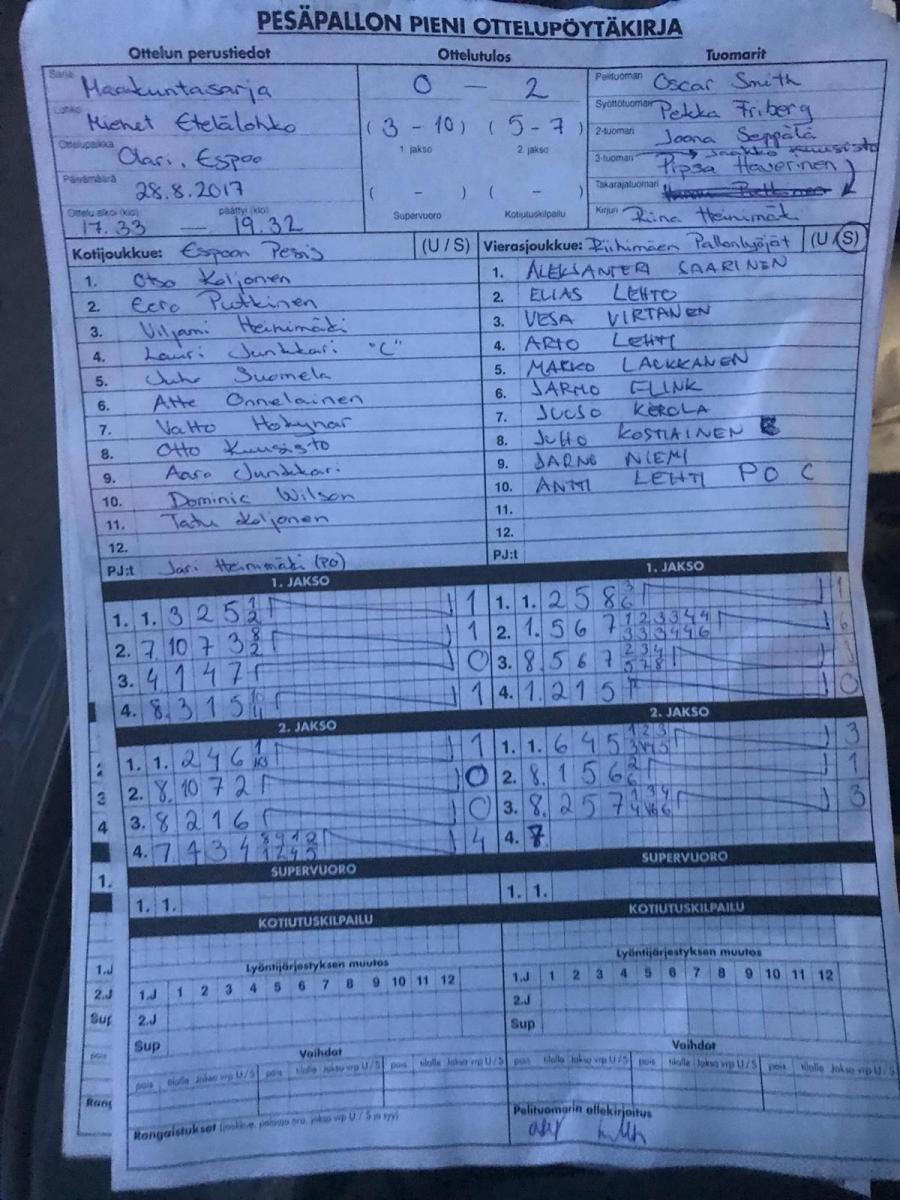 PESÄPALLON PIENI OTTELUPÖYTÄKIRJA
Ottelun perustiedot Ottelutulos Tuomarit
Sarja Maakuntasarja
Lohko Miehet Etelälohko
Ottelupaikka Olari, Espoo
Päivämäärä 28.8.2017
Ottelu alkoi (klo) päättyi (klo)
17.33 — 19.32
0 — 2
(3 - 10) (5 - 7)
1 jakso 2 jakso
( - ) ( - )
Supervuoro Kotiutuskilpailu
Pelituomari Oscar Smith
Syöttötuomari Pekka Friberg
2-tuomari Joona Seppälä
Jaakko Kuusisto
3-tuomari Pipsa Haverinen
Takarajatuomari
Kirjuri Riina Heinimäki
Kotijoukkue: Espoon Pesis (U / S)
1. Otso Koljonen
2. Eero Putkinen
3. Viljami Heinimäki
4. Lauri Junkkari "C"
5. Juho Suomela
6. Atte Onnelainen
7. Valtto Hokynar
8. Otto Kuusisto
9. Aaro Junkkari
10. Dominic Wilson
11. Tatu Koljonen
12.
PJ:t Jari Heinimäki (PO)
Vierasjoukkue: Riihimäen Pallonlyöjät (U / S)
1. ALEKSANTERI SAARINEN
2. ELIAS LEHTO
3. VESA VIRTANEN
4. ARTO LEHTI
5. MARKO LAUKKANEN
6. JARMO FLINK
7. JUUSO KEROLA
8. JUHO KOSTIAINEN
9. JARNO NIEMI
10. ANTTI LEHTI PO C
11.
12.
PJ:t
1. JAKSO
1. 1. 3 2 5 1 2 1
2. 7 10 7 3 8 2 1
3. 4 1 4 7 0
4. 8 3 1 5 10 11 1
2. JAKSO
1. 1. 2 4 6 1
2. 8 10 7 2 0
3. 8 2 1 6 0
4. 7 4 3 4 4
SUPERVUORO
1. 1.
KOTIUTUSKILPAILU
Lyöntijärjestyksen muutos
1.J 1 2 3 4 5 6 7 8 9 10 11 12
2.J
Sup
Vaihdot
pois tilalle Jakso vrp U / S pois tilalle Jakso vrp U / S pois
Rangaistukset
1. JAKSO
1. 1. 2 5 8 3 6 1
2. 1. 5 6 7 1 2 3 3 4 4 3 3 3 4 4 6 6
3. 8 5 6 7 2 3 4 5 7 8 3
4. 1. 2 1 5 0
2. JAKSO
1. 1. 6 4 5 1 2 3 3 4 5 3
2. 8. 1 5 6 1
3. 8. 2 5 7 1 3 4 4 6 6 3
4. 7
SUPERVUORO
1. 1.
KOTIUTUSKILPAILU
Lyöntijärjestyksen muutos
1.J 1 2 3 4 5 6 7 8 9 10 11 12
2.J
Sup
Vaihdot
tilalle Jakso vrp U / S pois tilalle Jakso vrp U / S pois tilalle Jakso vrp U / S
Pelituomarin allekirjoitus